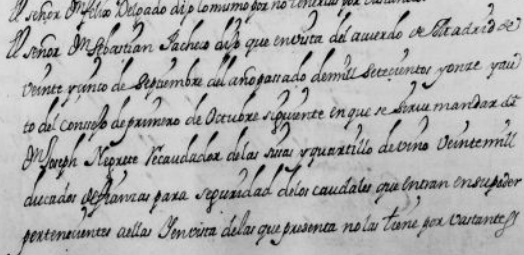 El señor Dn Felix Delgado dijo lo mismo por no tenerlas por vastantes
El señor Dn Sebastian Pacheco dijo que en vista del acuerdo de Madrid de
veinte y cinco de Septiembre del año passado de mill setecientos y onze y au
to del conssejo de primero de Octubre siguiente en que se sirve mandar dè
Dn Joseph Negrete Recaudador de las sisas y quartillo de vino veinte mill
ducados de fianzas para seguridad de los caudales que entran en su poder
pertenecientes a ellas Y en vista de las que presenta no las tiene por vastantes